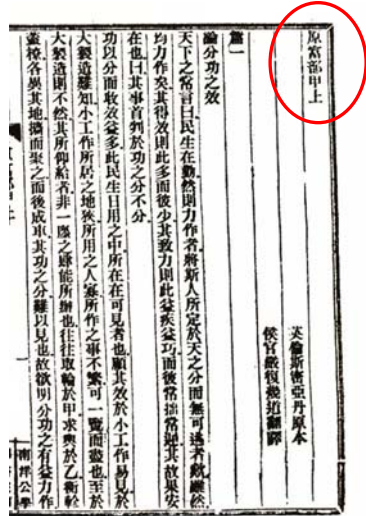 原富部甲上
英倫斯密亞丹原本
侯官嚴復幾道翻譯
篇一
論分功之效
天下之常言曰民生在勤然則力作者將斯人所定於天之分而無可逃者歟雖然
均力作矣其得效則此多而彼少其致力則此益疾益巧而彼常拙常遲其故果安
在也曰其事首判於功之分不分
功以分而收效益多此民生日用之中所在在可見者也顧其效於小工作易見於
大製造難知小工作所居之地狹所用之人寡所作之事不繁可一覽而盡也至於
大製造則不然其所仰給者非一廛之肆能所辦也往往取輪於甲求輿於乙衡軫
蓋橑各異其地攢而聚之而後成車其功之分難以見也故欲明分功之有益力作
一
南洋公學